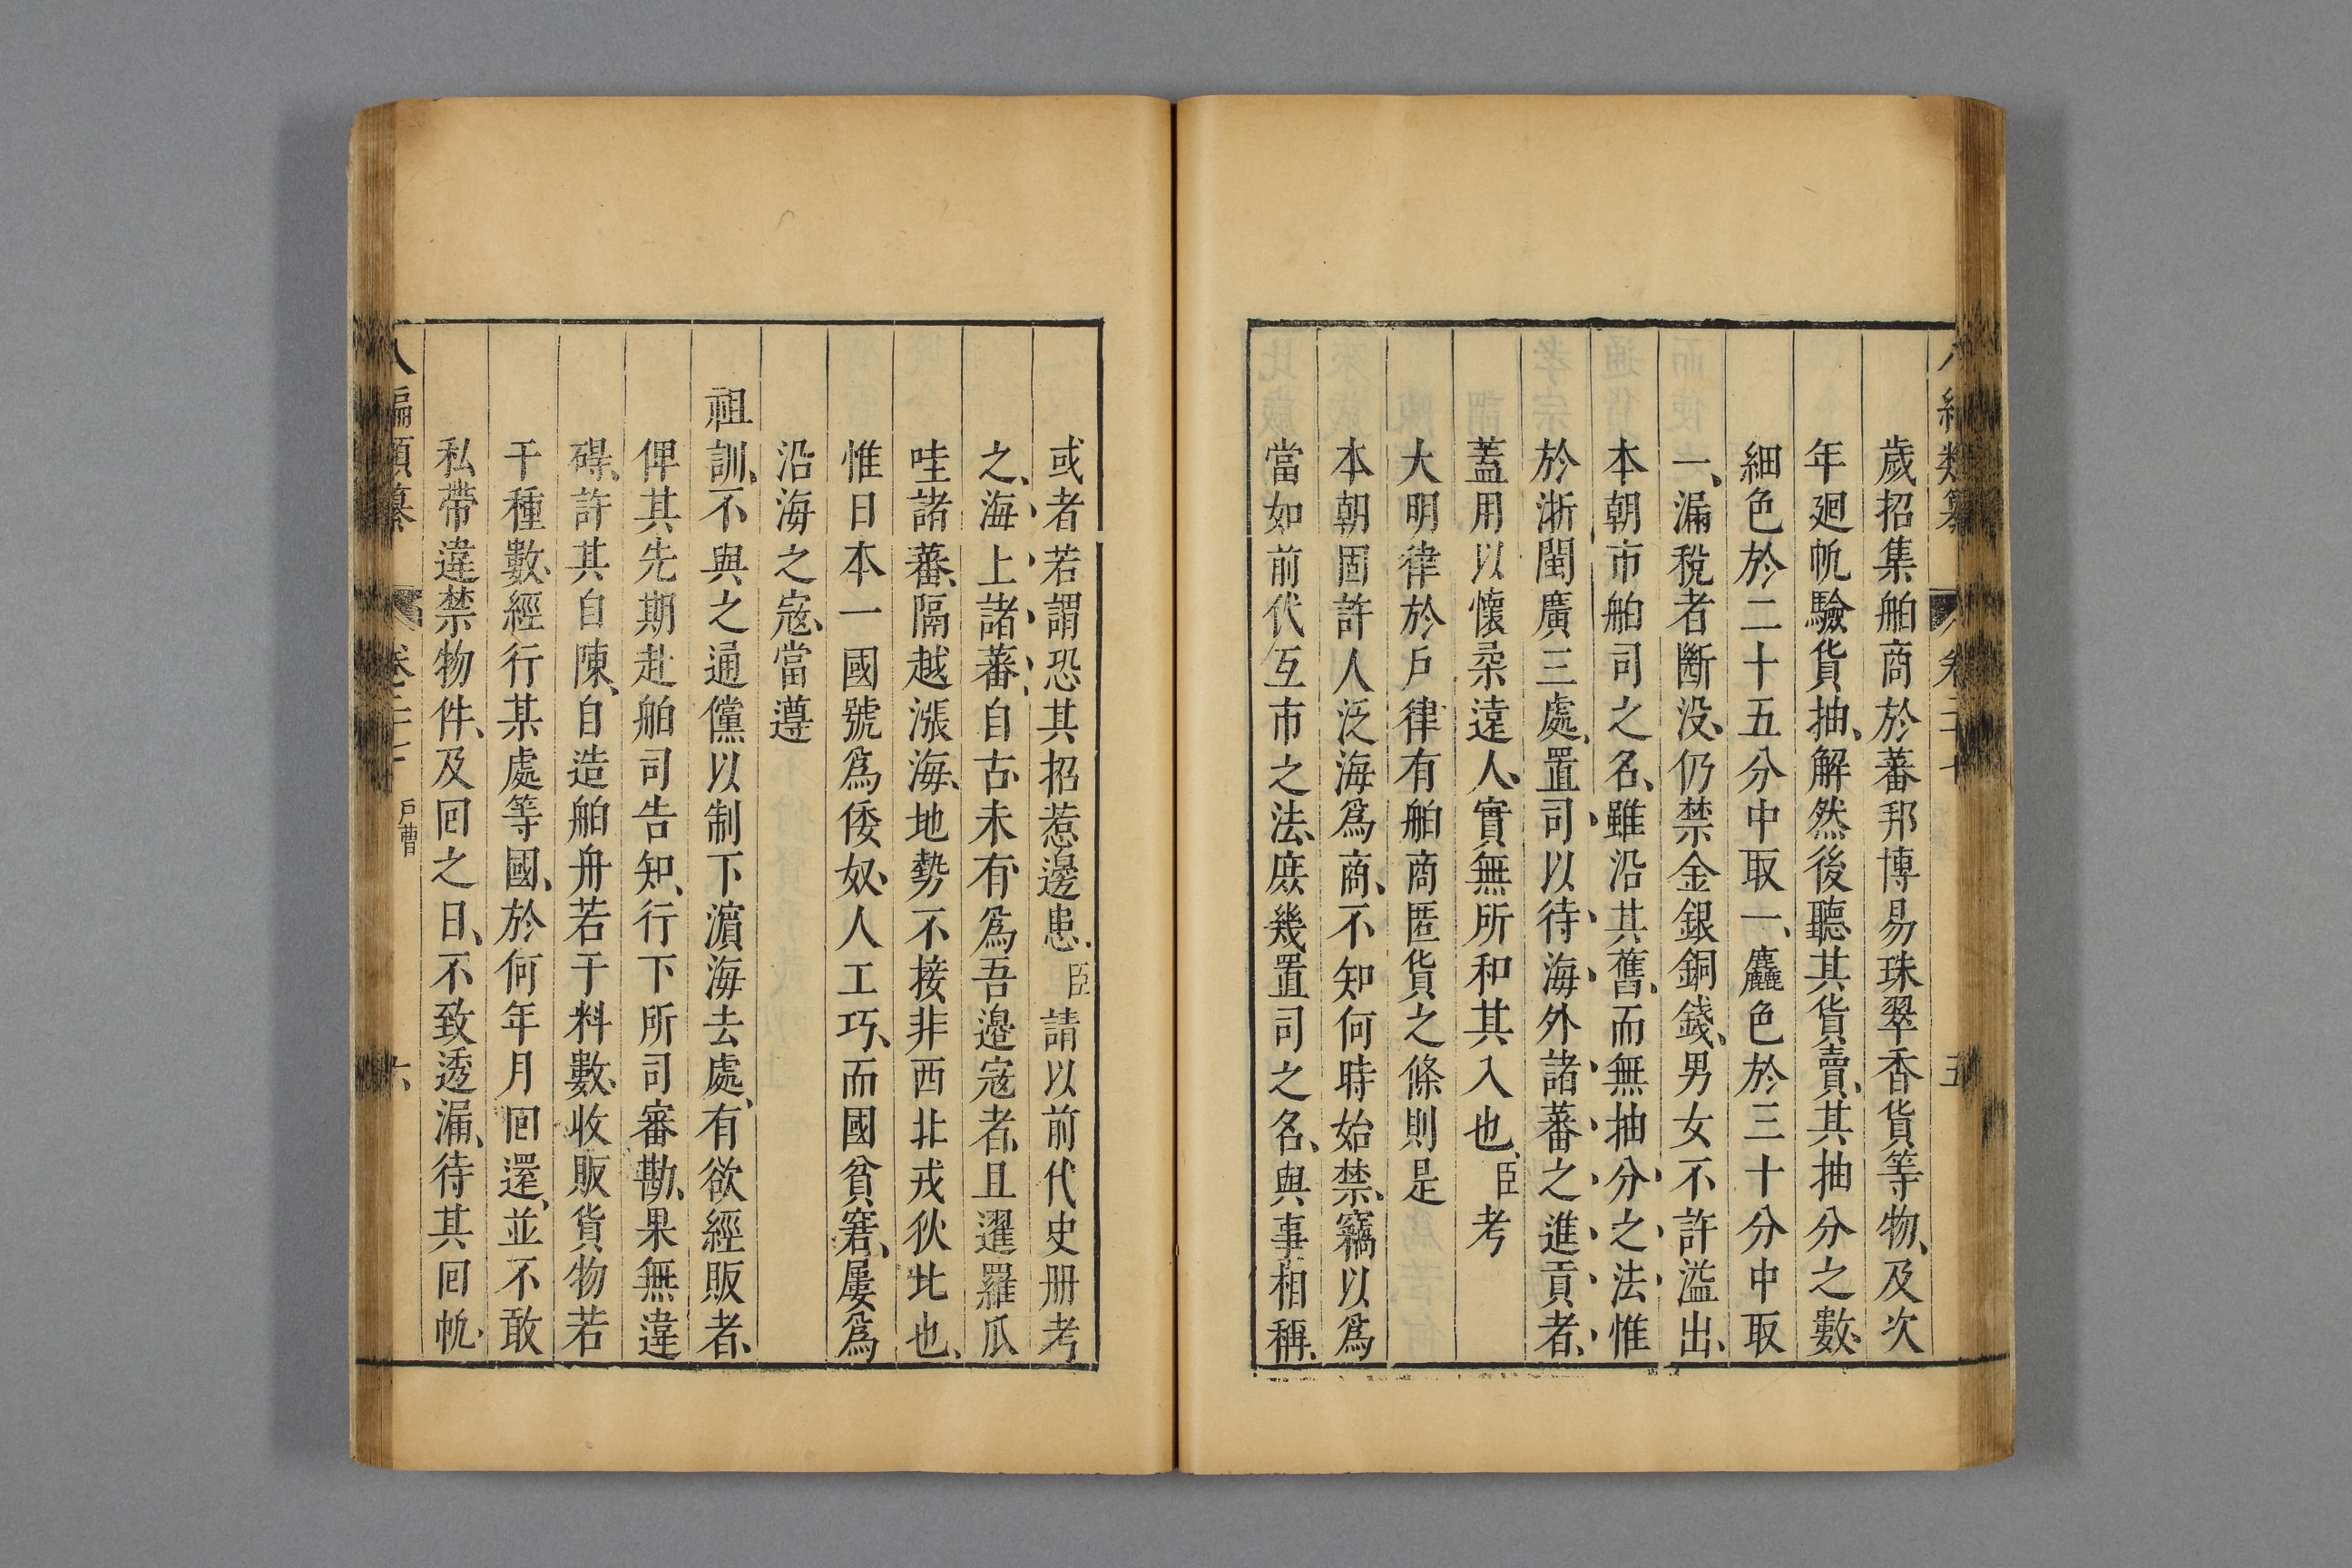 歲招集舶商於蕃邦博易珠翠香貨等物、及次
年廻帆驗貨抽、解然後聽其貨賣、其抽分之數、
細色於二十五分中取一、麤色於三十分中取
一、漏稅者斷没、仍禁金銀銅錢、男女不許溢出、
本朝市舶司之名、雖沿其舊、而無抽分之法惟
於浙閩廣三處、置司以待海外諸蕃之進貢者、
蓋用以懷柔遠人、實無所利其入也、臣考
大明律於戶律有舶商匿貨之條則是
本朝固許人泛海爲商、不知何時始禁、竊以爲
當如前代互市之法、庶幾置司之名、與事相稱、
或者若謂恐其招惹邊患、臣請以前代史册考
之、海上諸蕃、自古未有爲吾邉寇者、且暹羅瓜
哇諸蕃、隔越漲海、地勢不接非西北戎狄比也、
惟日本一國號爲倭奴、人工巧、而國貧窘、屢爲
沿海之寇、當遵
祖訓、不與之通儻以制下濵海去處、有欲經販者、
俾其先期赴舶司告知、行下所司審勘、果無違
碍、許其自陳、自造舶舟若干料數、收販貨物若
干種數、經行某處等國、於何年月回還、並不敢
私帶違禁物件、及回之日、不致透漏、待其回帆、
八編類纂 卷二十 戶曹 六